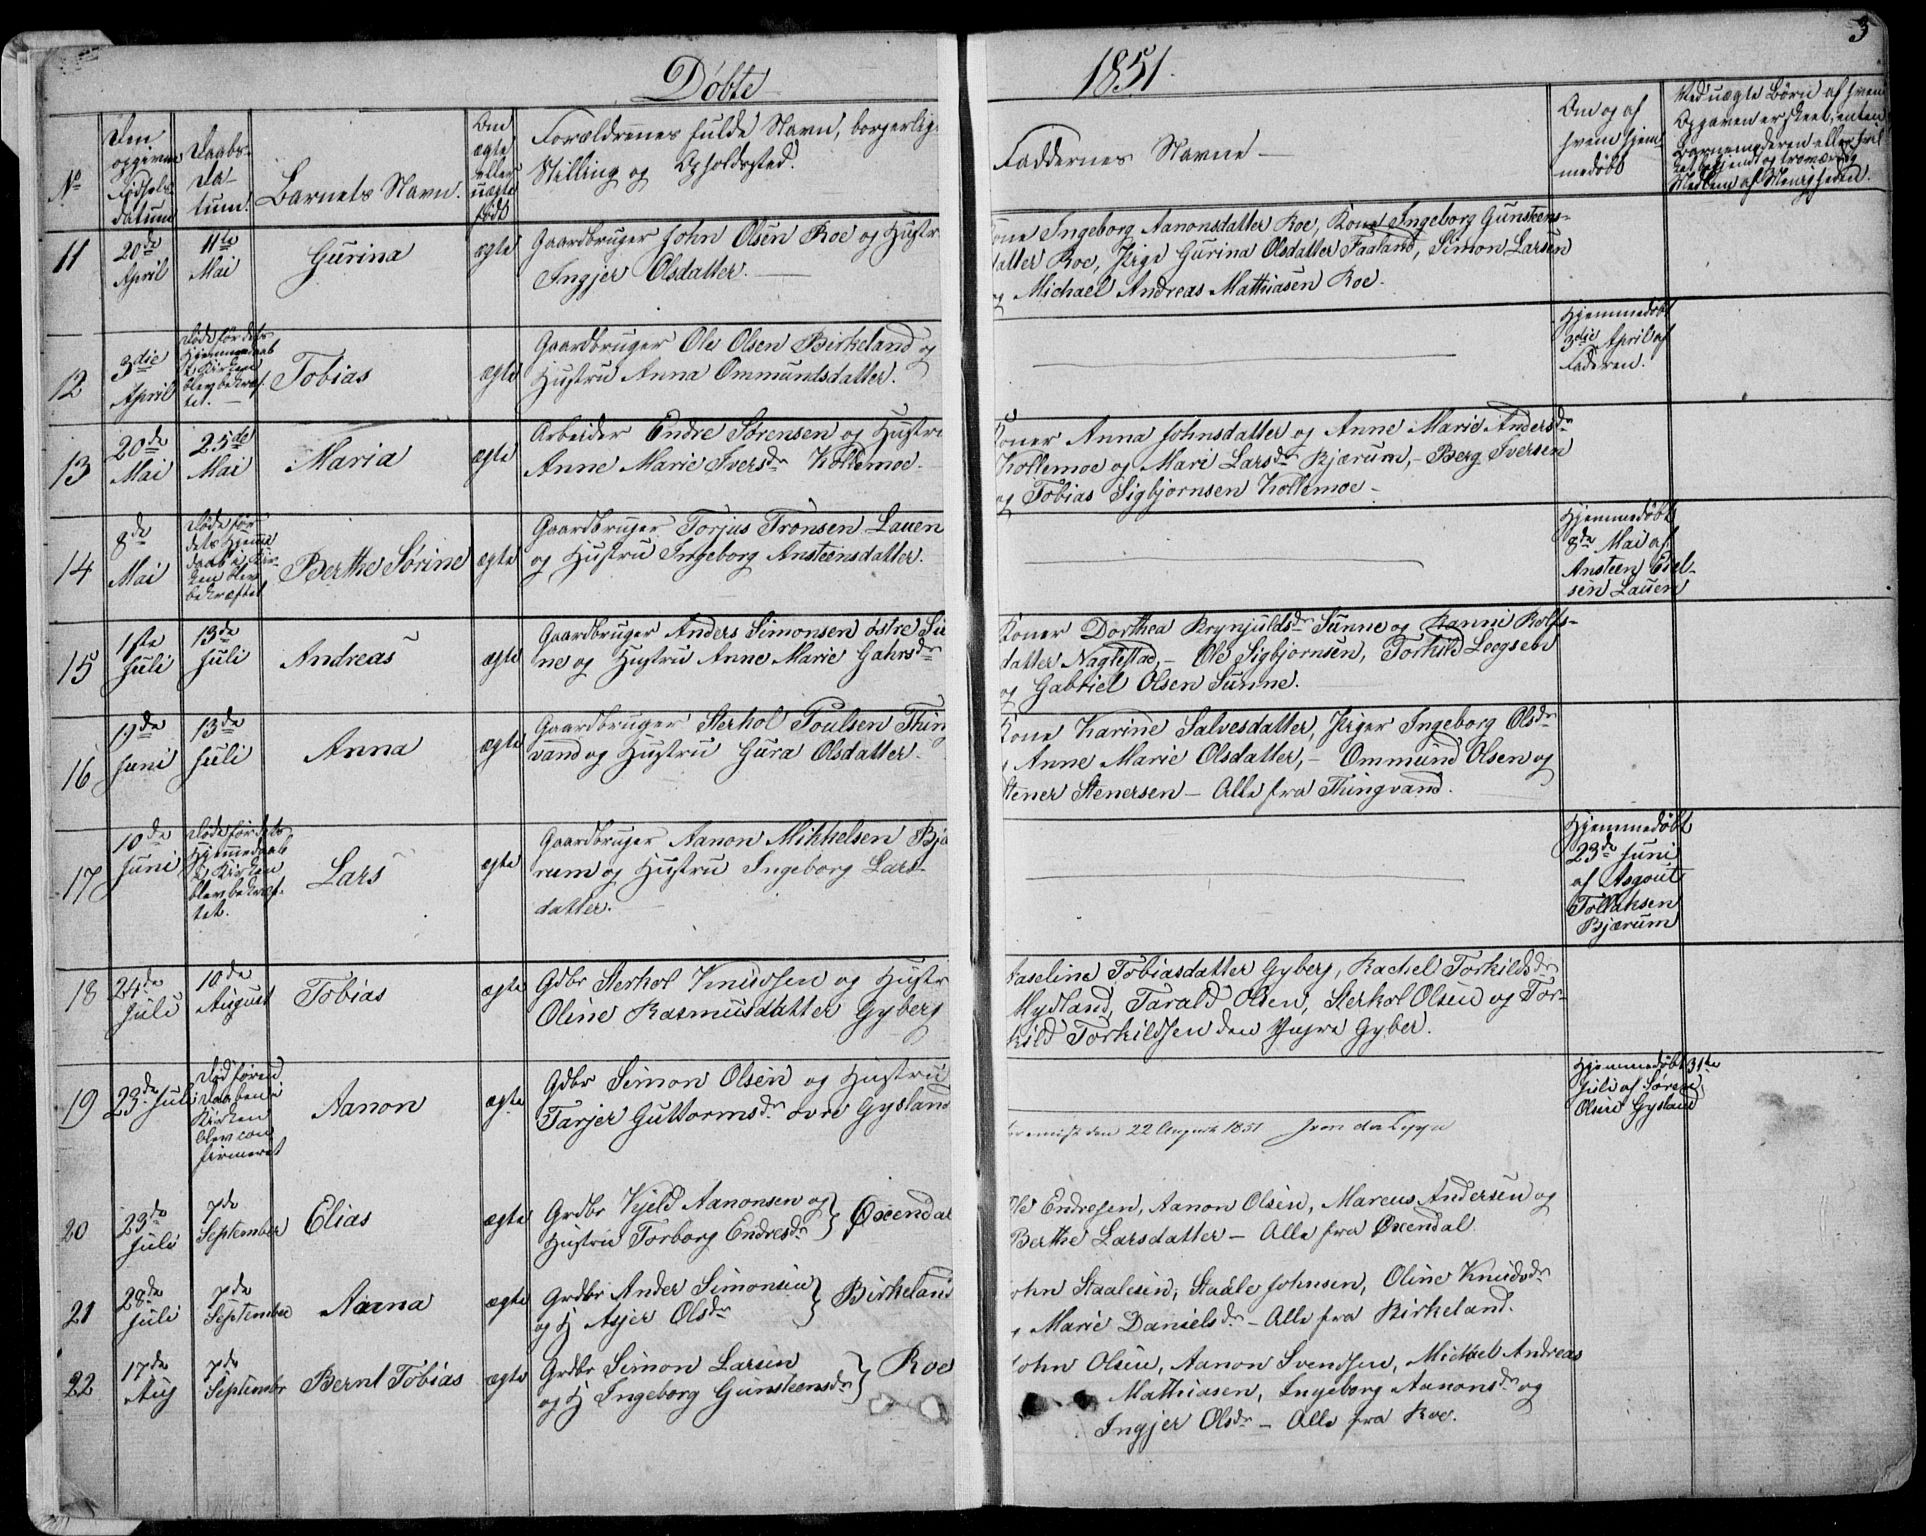 3
Døbte 1851.
No
Den opgivne Fødselsdatum
Daabs-Datum.
Barnets Navn.
Om ægte eller uægte født
Forældrenes fulde Navn, borgerlig
Stilling og Opholdssted.
Faddernes Navne —
Om og af
hvem hjem-
medøbt
Ved uægte Børn af hvem
Opgaven er skeet, enten
Barnemoderen eller
og troværdig
Medlem af Menigheden.
11
20de April
11te Mai
Gurina
ægte
Gaardbruger John Olsen Roe og Hustr
Ingjer Olsdatter. —
Kone Ingeborg Aanonsdatter Roe, Kone Ingeborg Gunsteens-
datter Roe, Pige Gurina Olsdatter Faaland, Simon Larsen
og Michael Andreas Mathiasen Roe.
12
3die April
Døde før dets
Hjemmedaab
i Kirken
blev bekræf-
tet. —
Tobias
ægte
Gaardbruger Ole Olsen Birkeland og
Hustru Anna Ommundsdatter.
Hjemmedøbt
3die April af
Faderen.
13
20de Mai
25de Mai
Maria
ægte
Arbeider Endre Sørensen og Hustru
Anne Marie Iversdr Kollemoe.
Koner Anna Johnsdatter og Anne Marie Andersdr
Kollemoe og Mari Larsdr Bjærum, - Berg Iversen
og Tobias Sigbjørnsen Kollemoe -
14
8de Mai
Døde før
dets Hjeme
daab i Kir-
ken blev
bekræftet
Berthe Sørine
ægte
Gaardbruger Torjus Tronsen Lauen
og Hustru Ingeborg Ansteensdatter.
Hjemmedøbt
8de Mai af
Ansteen Eiel-
sen Lauen
15
1ste Juli
13de Juli
Andreas
ægte
Gaardbruger Anders Simonsen østre Su
ne og Hustru Anne Marie Gahrsdr
Koner Dorthea Brynjuldsdr Sunne og Ranni Rolfs-
datter Nagtestad, - Ole Sigbjørnsen, Torkild Leegsen
og Gabriel Olsen Sunne.
16
19de Juni
13de Juli
Anna
ægte
Gaardbruger Sterkol Poulsen Thing
vand og Hustru Gura Olsdatter.
Kone Karine Salvesdatter, Piger Ingeborg Olsdr
g Anne Marie Olsdatter, - Ommund Olsen og
Stener Stenersen - Alle fra Thingvand.
17
10de Juni
Døde før dets
Hjemmedaab
i Kirken
blev bekræf-
tet.
Lars
ægte
Gaardbruger Aanon Mikkelsen Bjæ
rum og Hustru Ingeborg Lars-
datter. -
Hjemmedøbt
23de Juni
af Asgout
Tollaksen
Bjærum
18
24de Juli
10de August
Tobias
ægte
Gdbr Sterkol Knudsen og Hustr
Oline Rasmusdatter Gyberg
Taseline Tobiasdatter Gyberg, Rachel Torkildsdr
Mydland, Tarald Olsen, Sterkol Olsen og Tor-
kild Torkildsen den Yngre Gyber.
19
23de Juli
Død førend
Daaben i
Kirken
blev con-
firmeret
Aanon
ægte
Gdbr Simon Olsen og Hustru
Tarjer Guttormsdr øvre Gysland
Hjemmedøbt 31te
Juli af Søren
Olsen Gysland
den 22 August 1851
20
23de Juli
7de September
Elias
ægte
Grdbr Kjeld Aanonsen og
Hustru Torborg Endresdr } Øxendal
Ole Endresen, Aanon Olsen, Marcus Andersen og
Berthe Larsdatter - Alle fra Øxendal
21
28de Juli
7de September
Aanna
ægte
Grdbr Ander Simonsen
og H Asjer Olsdr } Birkeland
John Staalesen, Staale Johnsen, Oline Knudsdr
g Marie Danielsdr - Alle fra Birkeland.
22
17de Aug
7de Septembr
Bernt Tobias
ægte
Grdbr Simon Larsen
og H Ingeborg Gunsteensdr } Roe
John Olsen, Aanon Svendsen, Michael Andreas
Mathiasen, Ingeborg Aanonsdr og
Ingjer Olsdr - Alle fra Roe.